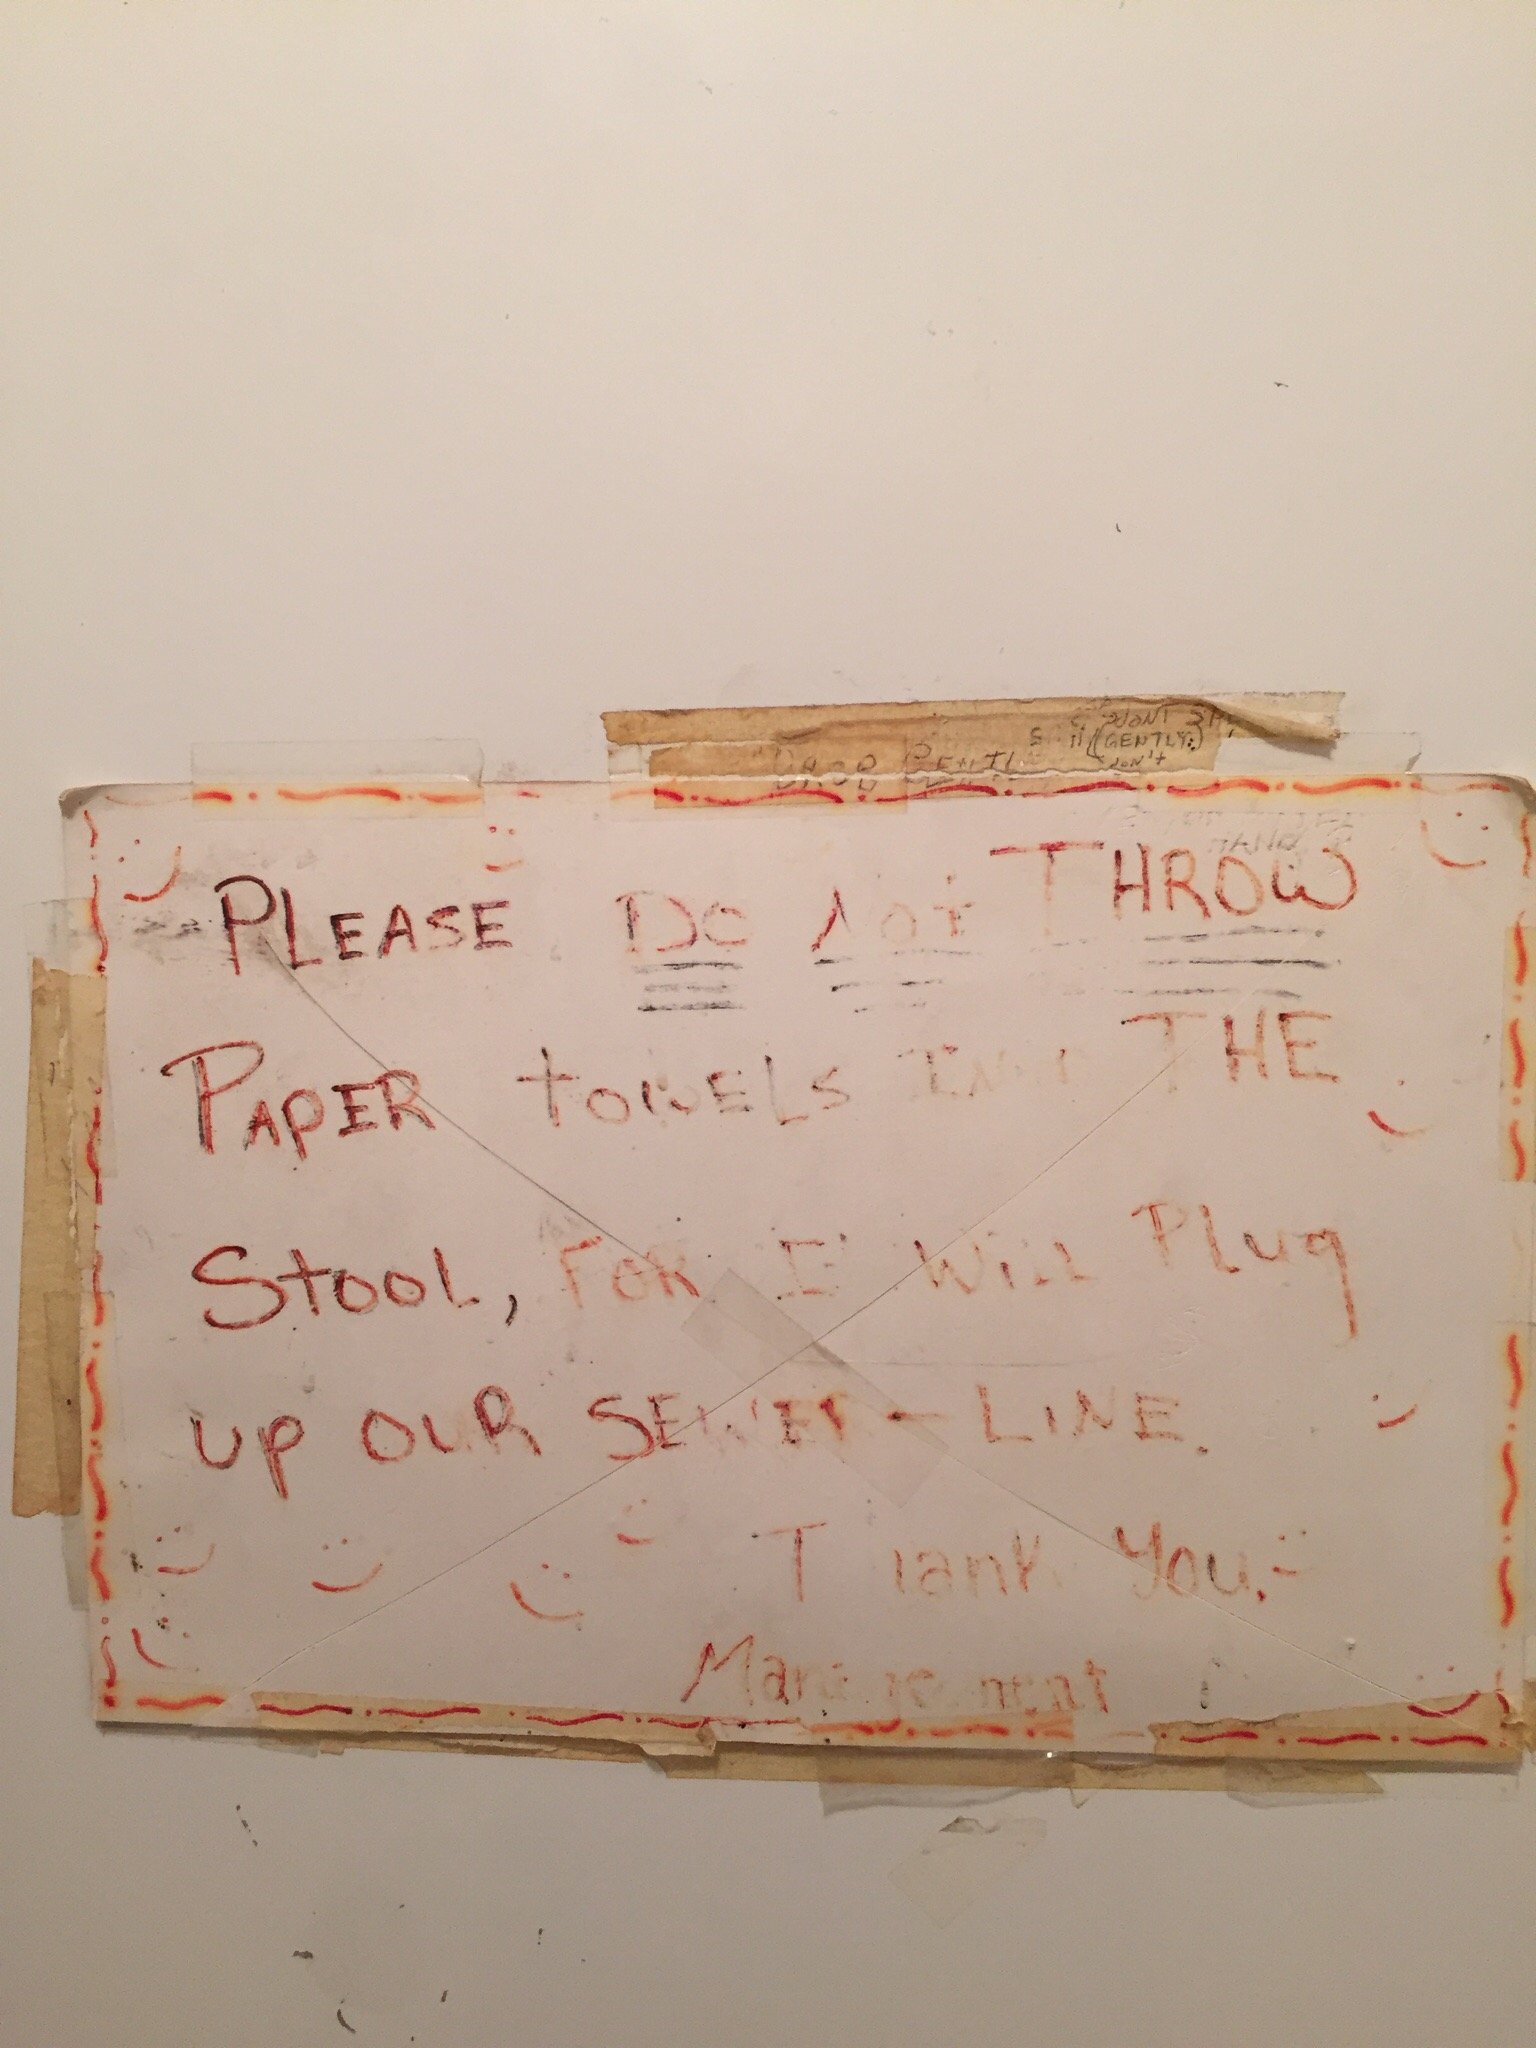 DON'T
(GENTLY:)
DON'T
PLEASE DO Not THROW
PAPER towELS INTO THE
StOOL, FOR It WILL PLug
up OUR SEWER - LINE.
Thank You.
Management